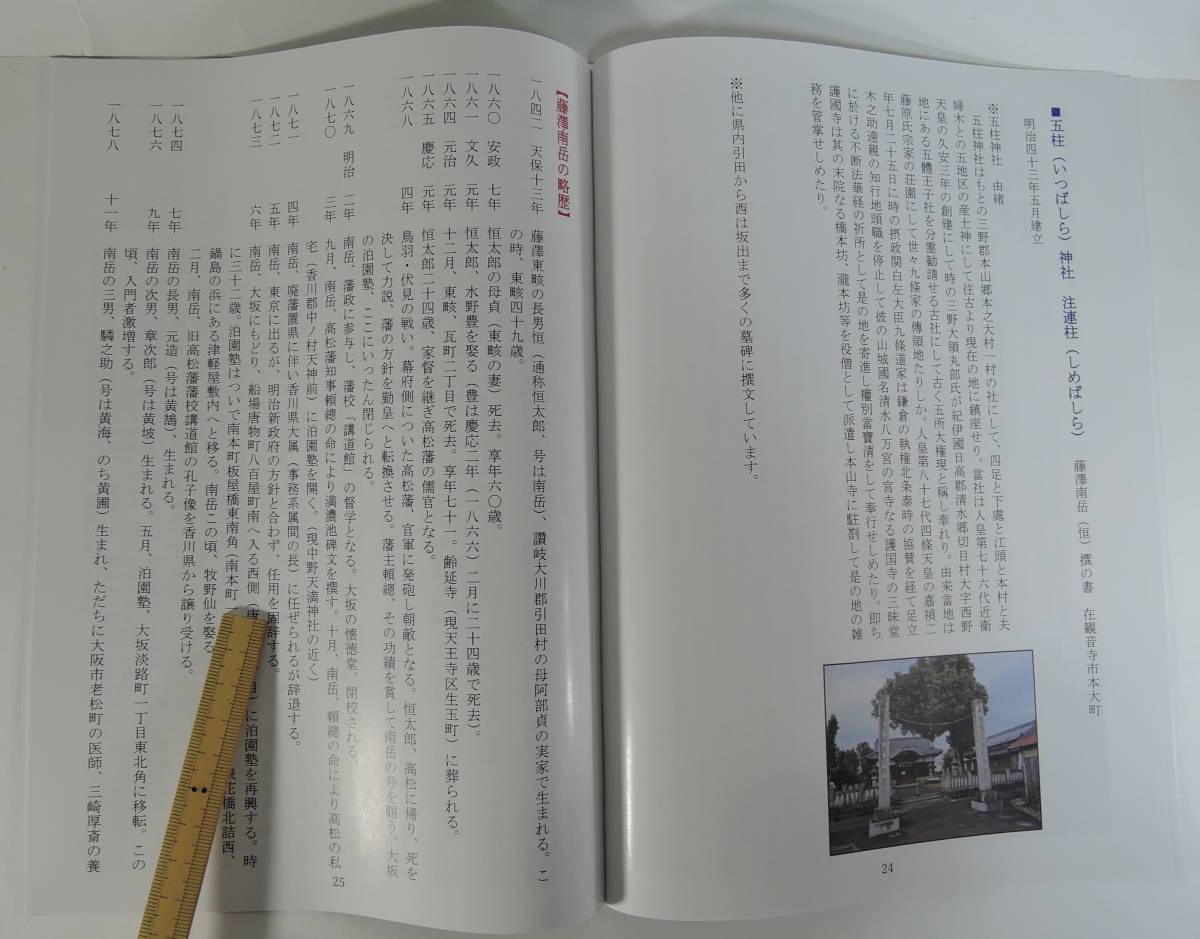 ■五柱（いつばしら）神社　注連柱（しめばしら）　藤澤南岳（恒）撰の書　在観音寺市本大町
明治四十三年五月建立
※五柱神社　由緒
五柱神社はもとの三野郡本山郷本之大村一村の社にして、四足と下處と江頭と本村と夫
婦木との五地区の産土神にして往古より現在の地に鎮座せり。當社は人皇第七十六代近衛
天皇の久安三年の創建にして時の三野大領丸部氏が紀伊國日高郡清水郷切目村大字西野
地にある五體王子社を分霊勧請せる古社にして古く五所大権現と稱し奉れり。由来當地は
藤原氏宗家の荘園にして世々九條家の傳領地たりしか。人皇第八十七代四條天皇の嘉禎二
年七月二十五日に時の摂政関白左大臣九條道家は鎌倉の執権北条泰時の協賛を経て足立
木之助遠親の知行地頭職を停止して彼の山城國名清水八万宮の宮寺なる護国寺の三昧堂
に於ける不断法華経の祈所として是の地を寄進し權別當寶清をして奉行せしめたり。即ち
護國寺は其の末院なる橋本坊、瀧本坊等を役僧として派遣し本山寺に駐剳して是の地の雑
務を管掌せしめたり。
※他に県内引田から西は坂出まで多くの墓碑に撰文しています。
24
【藤澤南岳の略歴】
一八四二　天保十三年　藤澤東畡の長男恒（通称恒太郎、号は南岳）、讃岐大川郡引田村の母阿部貞の実家で生まれる。こ
の時、東畡四十九歳。
一八六〇　安政　七年　恒太郎の母貞（東畡の妻）死去。享年六〇歳。
一八六一　文久　元年　恒太郎、水野豊を娶る（豊は慶応二年（一八六六）二月に二十四歳で死去）。
一八六四　元治　元年　十二月、東畡、瓦町二丁目で死去。享年七十一。齢延寺（現天王寺区生玉町）に葬られる。
一八六五　慶応　元年　恒太郎二十四歳、家督を継ぎ高松藩の儒官となる。
一八六八　四年　鳥羽・伏見の戦い。幕府側についた高松藩、官軍に発砲し朝敵となる。恒太郎、高松に帰り、死を
決して力説、藩の方針を勤皇へと転換させる。藩主頼總、その功績を賞して南岳の号を賜う。大坂
の泊園塾、ここにいったん閉じられる。
一八六九　明治　二年　南岳、藩政に参与し、藩校「講道館」の督学となる。大坂の懐徳堂、閉校される。
一八七〇　三年　九月、南岳、高松藩知事頼總の命により満濃池碑文を撰す。十月、南岳、頼總の命により高松の私
宅（香川郡中ノ村天神前）に泊園塾を開く。（現中野天満神社の近く）
一八七一　四年　南岳、廃藩置県に伴い香川県大属（事務系属間の長）に任ぜられるが辞退する。
一八七二　五年　南岳、東京に出るが、明治新政府の方針と合わず、任用を固辞する。
一八七三　六年　南岳、大坂にもどり、船場唐物町八百屋町南へ入る西側（
）に泊園塾を再興する。時
に三十二歳。泊園塾はついで南本町板屋橋東南角（南本町
花橋北詰西、
鍋島の浜にある津軽屋敷内へと移る。南岳この頃、牧野仙を娶る
二月、南岳、旧高松藩藩校講道館の孔子像を香川県から譲り受ける。
一八七四　七年　南岳の長男、元造（号は黄鵠）、生まれる。
一八七六　九年　南岳の次男、章次郎（号は黄坡）生まれる。五月、泊園塾、大坂淡路町一丁目東北角に移転。この
頃、入門者激増する。
一八七八　十一年　南岳の三男、驎之助（号は黄海、のち黄圃）生まれ、ただちに大阪市老松町の医師、三崎厚斎の養
25